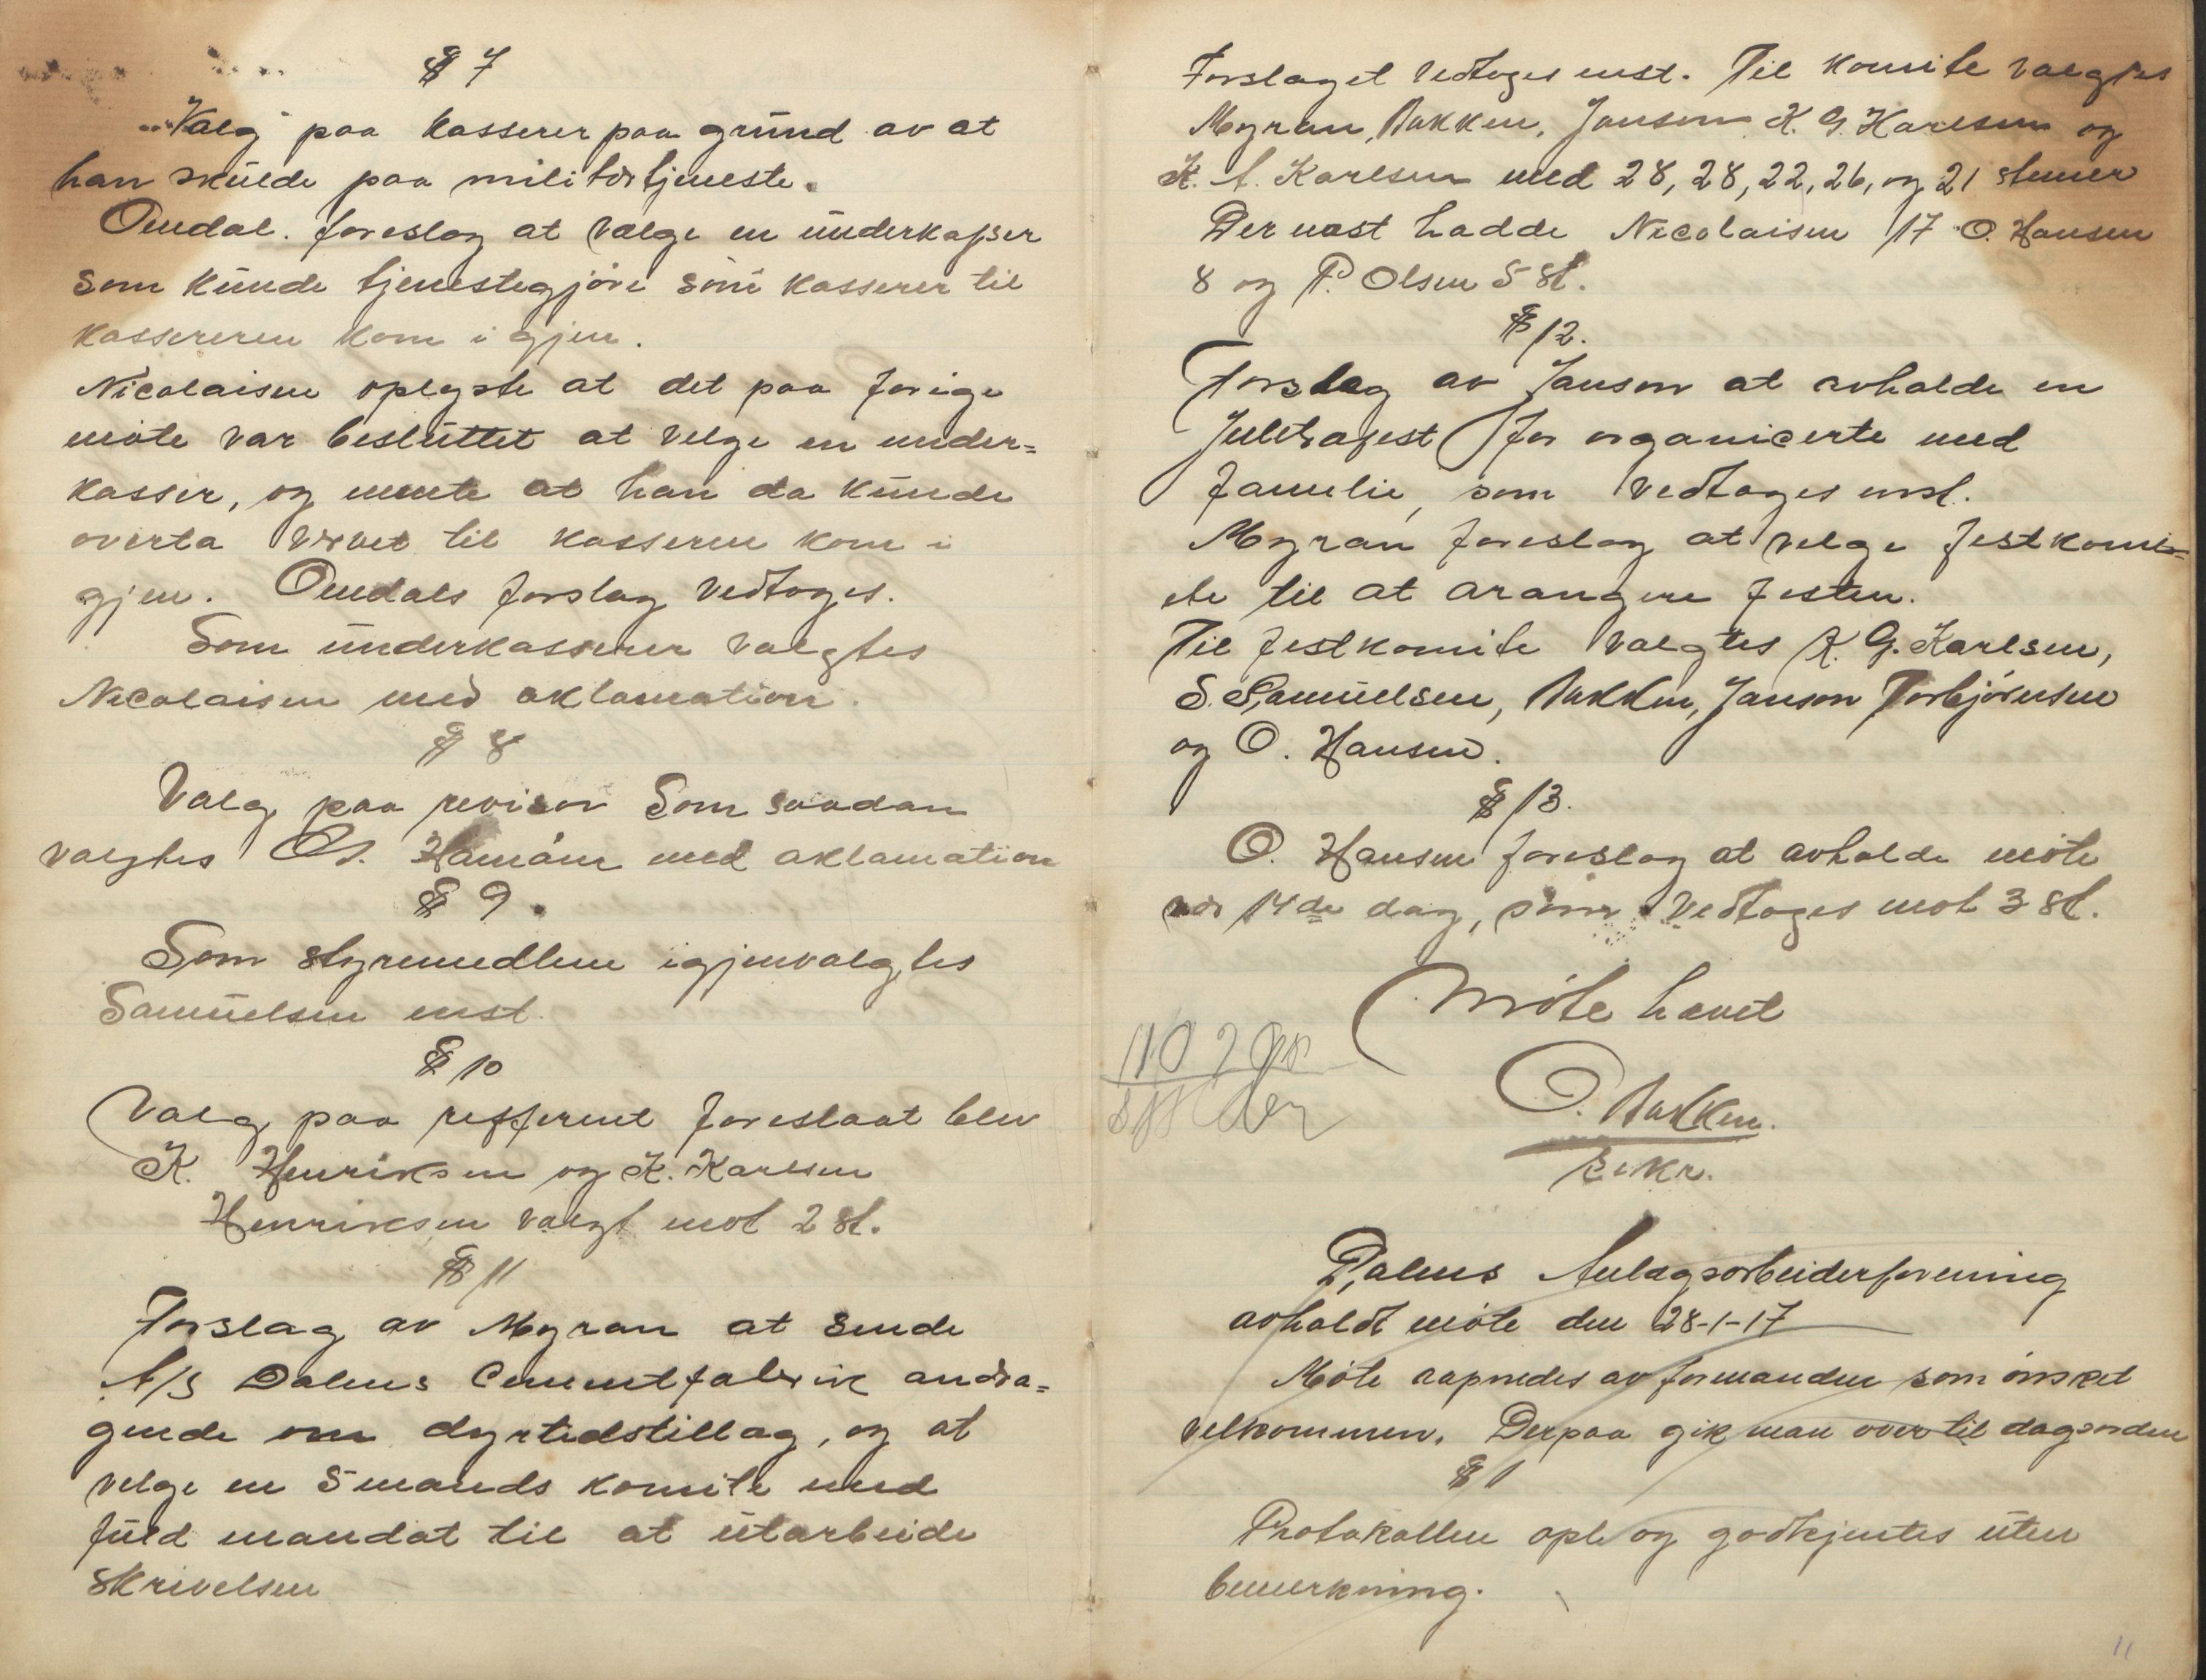 § 7
Valg paa kasserer paa grund av at
han skulde paa militærtjeneste.
Omdal. foreslog at vælge en underkasser
som kunde tjenestegjøre som kasserer til
kassereren kom i gjen.
Nicolaisen oplyste at det paa forige
møte var besluttet at velge en under=
kasser, og mente at han da kunde
overta vervet til kasseren kom i
gjen. Omdals forslag vedtoges.
Som underkasserer valgtes
Nicolaisen med aklamation.
§ 8
Valg paa revisor Som saadan
valgtes med aklamation
§ 9.
Som styremedlem igjenvalgtes
Samuelsen enst.
§ 10
Valg paa refferent foreslaat blev
K. Henriksen og K. Karlsen
Henriksen valgt mot 2 st.
§ 11
Forslag av Myran at sende
A/S Dalens Cementfabrik andra=
gende om dyrtidstillag, og at
velge en 5 mands komite med
fuld mandat til at utarbeide
skrivelsen
Forslaget vedtoges enst. Til komite valgtes
Myran, Bakken, Janson K. G. Karlsen og
K. A. Karlsen med 28, 28, 22, 26, og 21 stemer
Der næst hadde Nicolaisen 17 O. Hansen
8 og P. Olsen 5 st.
§ 12.
Forslag av Janson at avholde en
Juletrafest for organicerte med
familie, som vedtoges enst.
Myran foreslog at velge festkomi=
te til at arangere festen.
Til festkomite valgtes K. G. Karlsen,
S. Samuelsen, Bakken, Janson Torbjørnsen
og O. Hansen.
§ 13.
O. Hansen foreslog at avholde møte
vær 14de dag, som vedtoges mot 3 st.
Møte hævet
O. Bakken.
sekr.
Dalens Anlægsarbeiderforening
avholdt møte den 28-1-17
Møte aapnedes av formanden som ønsket
velkommen. Derpaa gik man over til dagsorden
§ 1
Protokollen opl. og godkjentes uten
bemerkning.
11